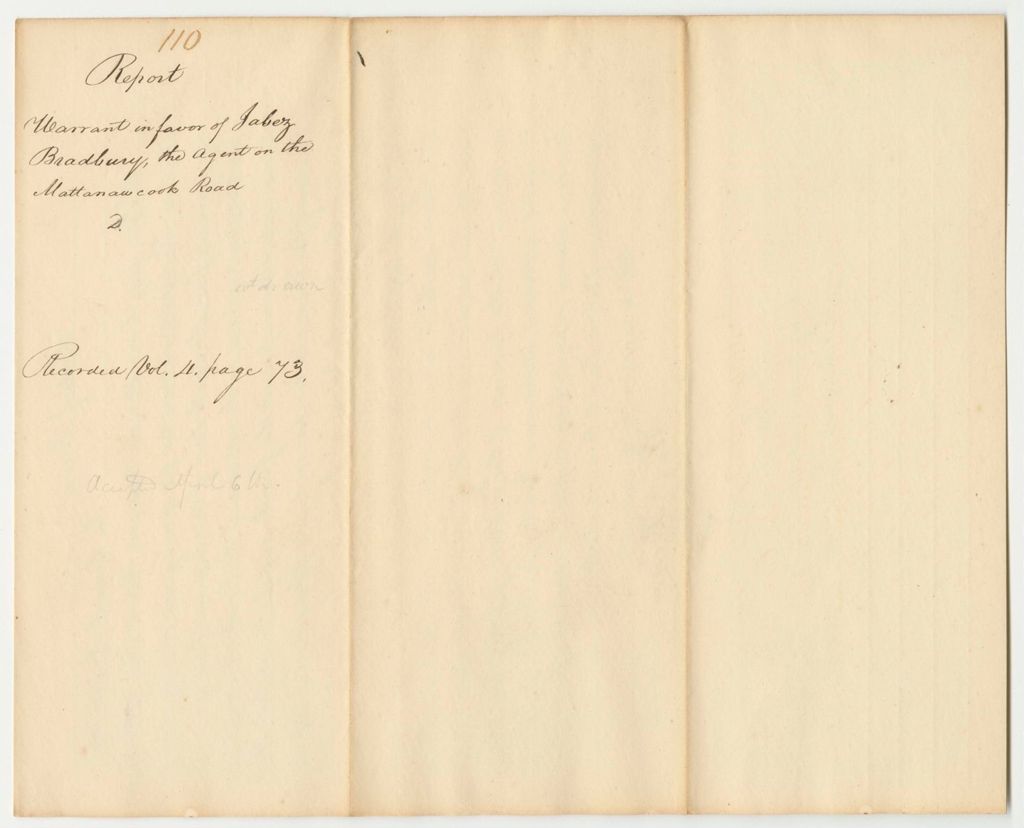 110
Report
Warrant in favor of Jabez
Bradbury, the Agent on the
Mattanawcook Road
D.
Recorded Vol. 4. page 73.
April 6th.